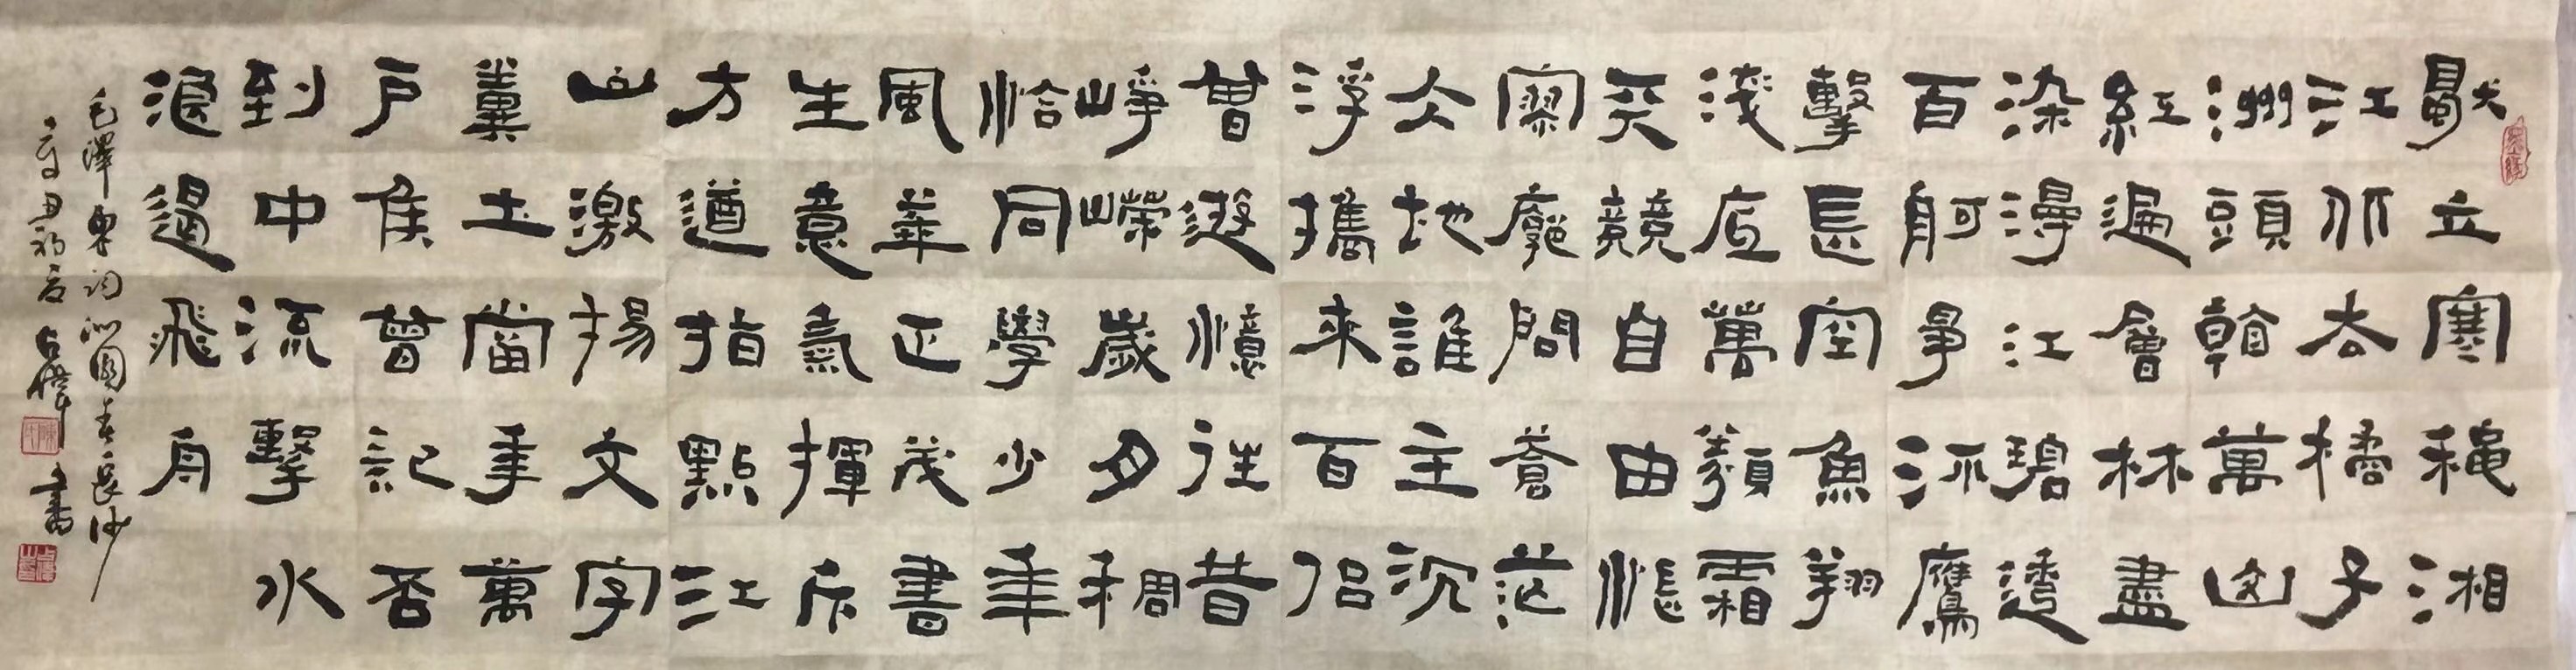 獨立寒穐湘
江北去橘子
洲頭看萬山
紅遍層林盡
染漫江碧透
百舸爭流鷹
擊長空魚翔
淺底萬類霜
天競自由悵
寥廓問蒼茫
大地誰主沉
浮攜來百侶
曾遊憶往昔
崢嶸歲月稠
恰同學少年
風華正茂書
生意氣揮斥
方遒指點江
山激揚文字
糞土當年萬
戶侯曾記否
到中流擊水
浪遏飛舟
毛澤東詞沁園春長沙
辛丑初夏 書